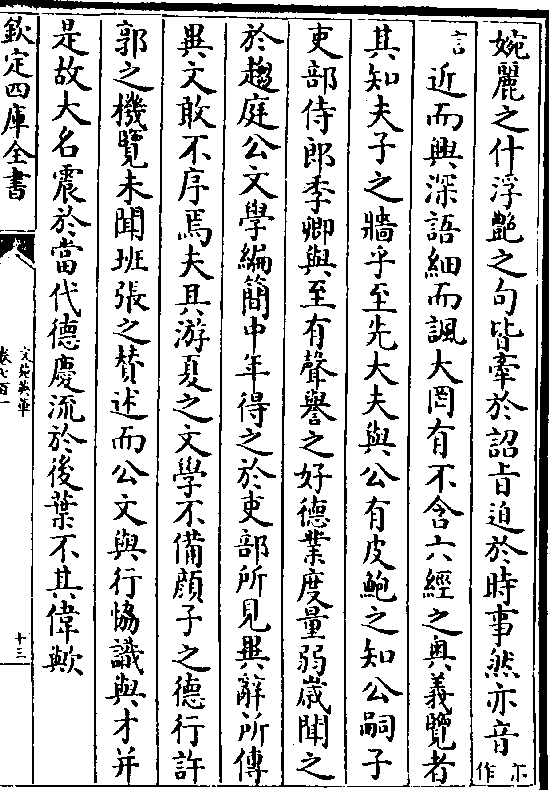 婉麗之什浮艷之句皆牽於詔旨迫於時事然亦音作示
言近而興深語細而諷大罔有不含六經之奧義覽者
其知夫子之牆乎至先大夫與公有皮鮑之知公嗣子
吏部侍郎季卿與至有聲譽之好德業度量弱嵗聞之
於趨庭公文學編簡中年得之於吏部所見異辭所傳
異文敢不序焉夫具游夏之文學不備顔子之德行許
郭之機覽未聞班張之賛述而公文與行恊識與才并
是故大名震於當代德慶流於後葉不其偉歟
欽定四庫全書
文苑英華
卷七百一
十三